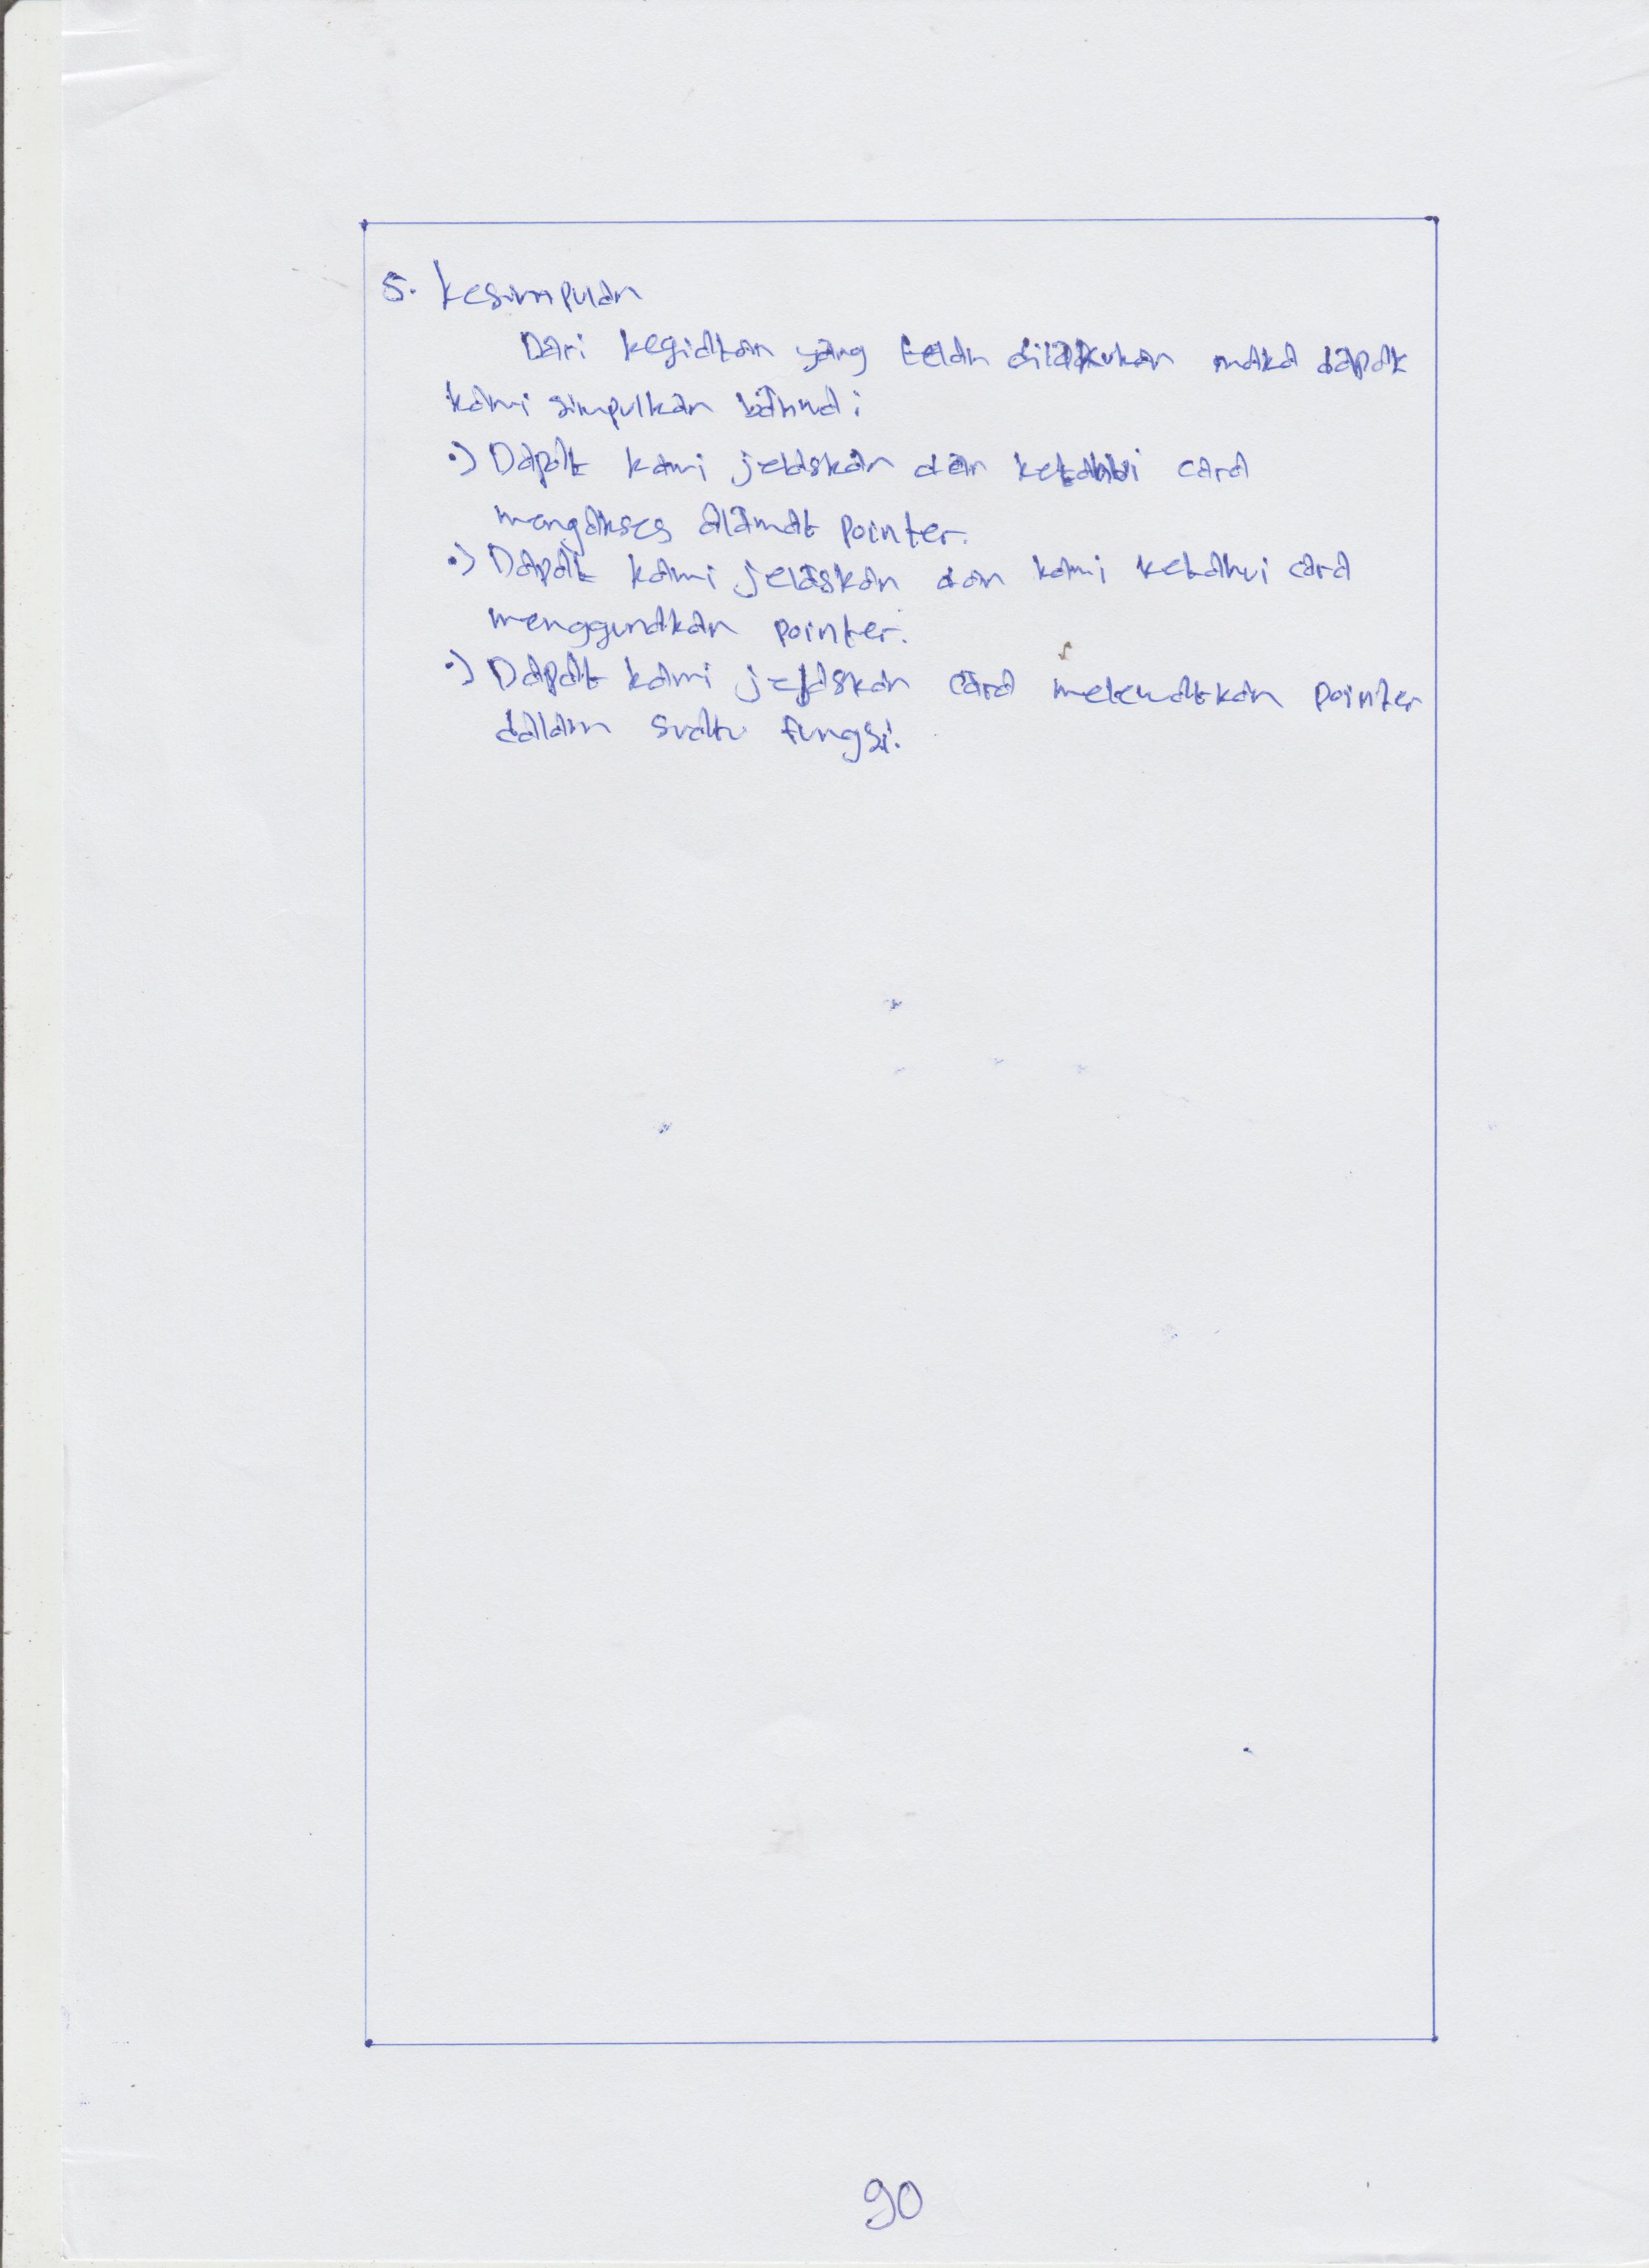 5. Kesimpulan
Dari kegiatan yang telah dilakukan maka dapat
kami simpulkan bahwa :
•) Dapat kami jelaskan dan ketahui cara
mengakses alamat pointer.
•) Dapat kami jelaskan dan kami ketahui cara
menggunakan pointer.
•) Dapat kami jelaskan cara melewatkan pointer
dalam suatu fungsi.
90